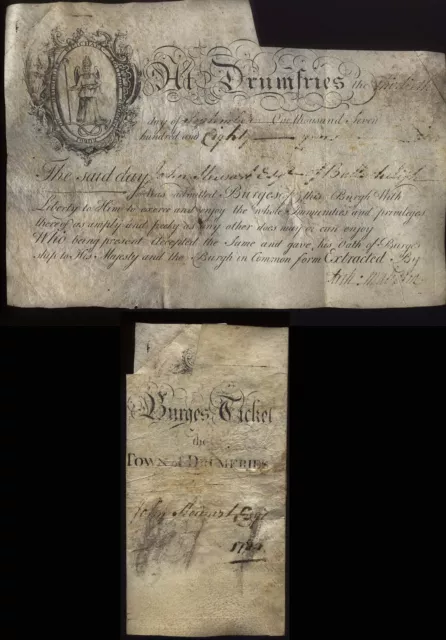 At Drumfries the
day of One thousand Seven
hundred and Eighty years
The said day John Stewart Esqr of
was admitted Burges of this Burgh With
Liberty to Him to exerce and enjoy the whole Immunities and priviledges
thereof as amply and freely as any other does may or can enjoy
Who being present accepted the Same and gave his Oath of Burges
ship to His Majesty and the Burgh in Common form Extracted By
Burges Ticket
the
TOWN of DRUMFRIES
John Stewart Esqr
1780